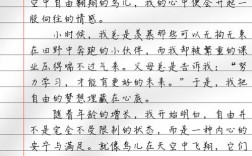 空中自由翱翔的鸟儿，我的心中便会升起一
股向往的情感。
小时候，我总是羡慕那些可以无拘无束
在田野中奔跑的小伙伴，而我却被繁重的课
业压得喘不过气来。父母总是告诉我：“努
力学习，才能有更好的未来。”于是，我把
自由的梦想埋藏在心底。
随着年龄的增长，我开始明白，自由并
不是完全不受限制的状态，而是一种内心的
安宁与满足。就像鸟儿在天空中飞翔，它们